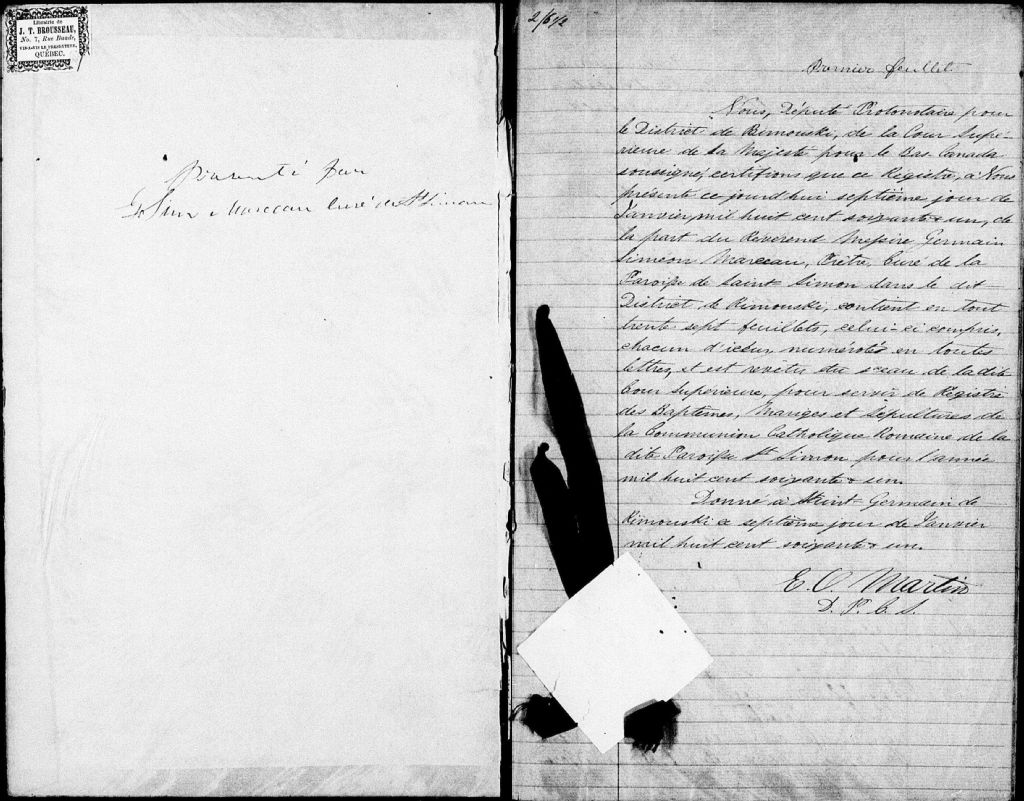 Librairie de
J. T. BROUSSEAU,
No. 7, Rue Buade,
VIS-A-VIS LE PRESBYTERE,
QUÉBEC.
Présenté par
Gn Sim. Marceau Curé de St Simon
Premier feuillet
Nous, Député Protonotaire pour
le District de Rimouski, de la Cour Supé-
rieure de Sa Majesté pour le Bas-Canada
soussigné, certifions que ce Régistre, à Nous
présenté ce jourd'hui septième jour de
Janvier mil huit cent soixante & un, de
la part du Révérend Messire Germain
Siméon Marceau, Prêtre, Curé de la
Paroisse de Saint Simon dans le dit
District de Rimouski, contient en tout
trente sept feuillets, celui-ci compris,
chacun d'iceux numérotés en toutes
lettres, et est revêtu du sceau de la dite
Cour Supérieure, pour servir de Régistre
des Baptêmes, Mariges et Sépultures de
la Communion Catholique Romaine de la
dite Paroisse St Simon pour l'année
mil huit cent soixante & un.
Donné à Saint-Germain de
Rimouski ce septième jour de Janvier
mil huit cent soixante & un.
E. O. Martin
D. P. C. S.